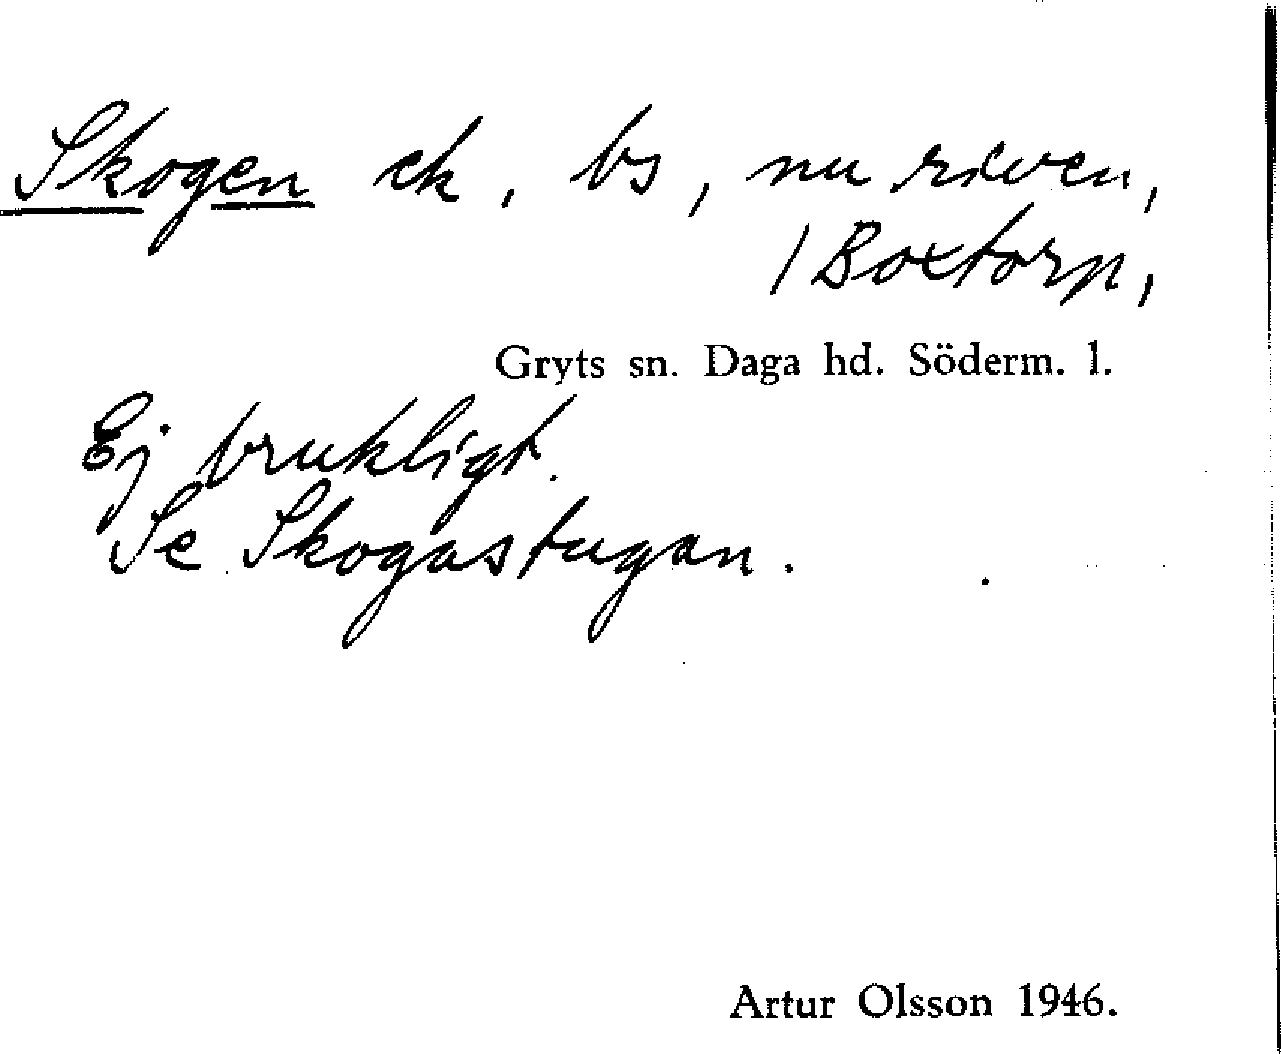 Skogen ek, bs, nu riven,
/ Boxtorp,
Gryts sn. Daga hd. Söderm. l.
Ej brukligt.
Se Skogastugan.
Artur Olsson 1946.